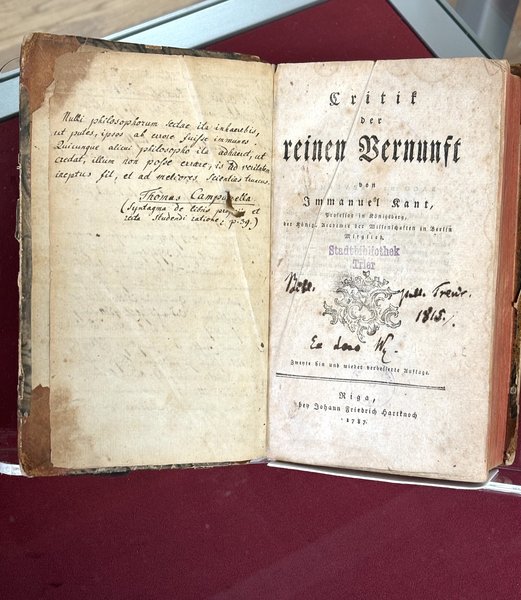 Nulli philosophorum sectae ita inhaerebis,
ut putes, ipsos ab errore fuisse immunes.
Quicunque alicui philosopho ita adhaeret, ut
credat, illum non posse errare, is ad veritatem
ineptus fit, et ad meliores scientias
Thomas Campanella
(Syntagma de libris propriis et
recta studendi ratione. p. 39.)
Critik
der
reinen Vernunft
von
Immanuel Kant,
Professor in Königsberg,
der Königl. Academie der Wissenschaften in Berlin
Mitglied.
Stadtbibliothek
Trier
Bibl. publ. Trevir.
1815.
Ex dono
Zweyte hin und wieder verbesserte Auflage.
Riga,
bey Johann Friedrich Hartknoch
1787.